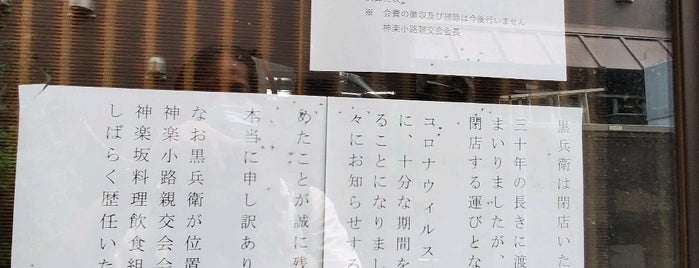 ※ 会費の徴収及び掃除は今後行いません
神楽小路親交会会長
黒兵衛は閉店いた
三十年の長きに渡
まいりましたが、
閉店する運びとな
コロナウィルス
に、十分な期間を
ることになりまし
々にお知らせする
めたことが誠に残
本当に申し訳あり
なお黒兵衛が位置
神楽小路親交会会
神楽坂料理飲食組
しばらく歴任いた